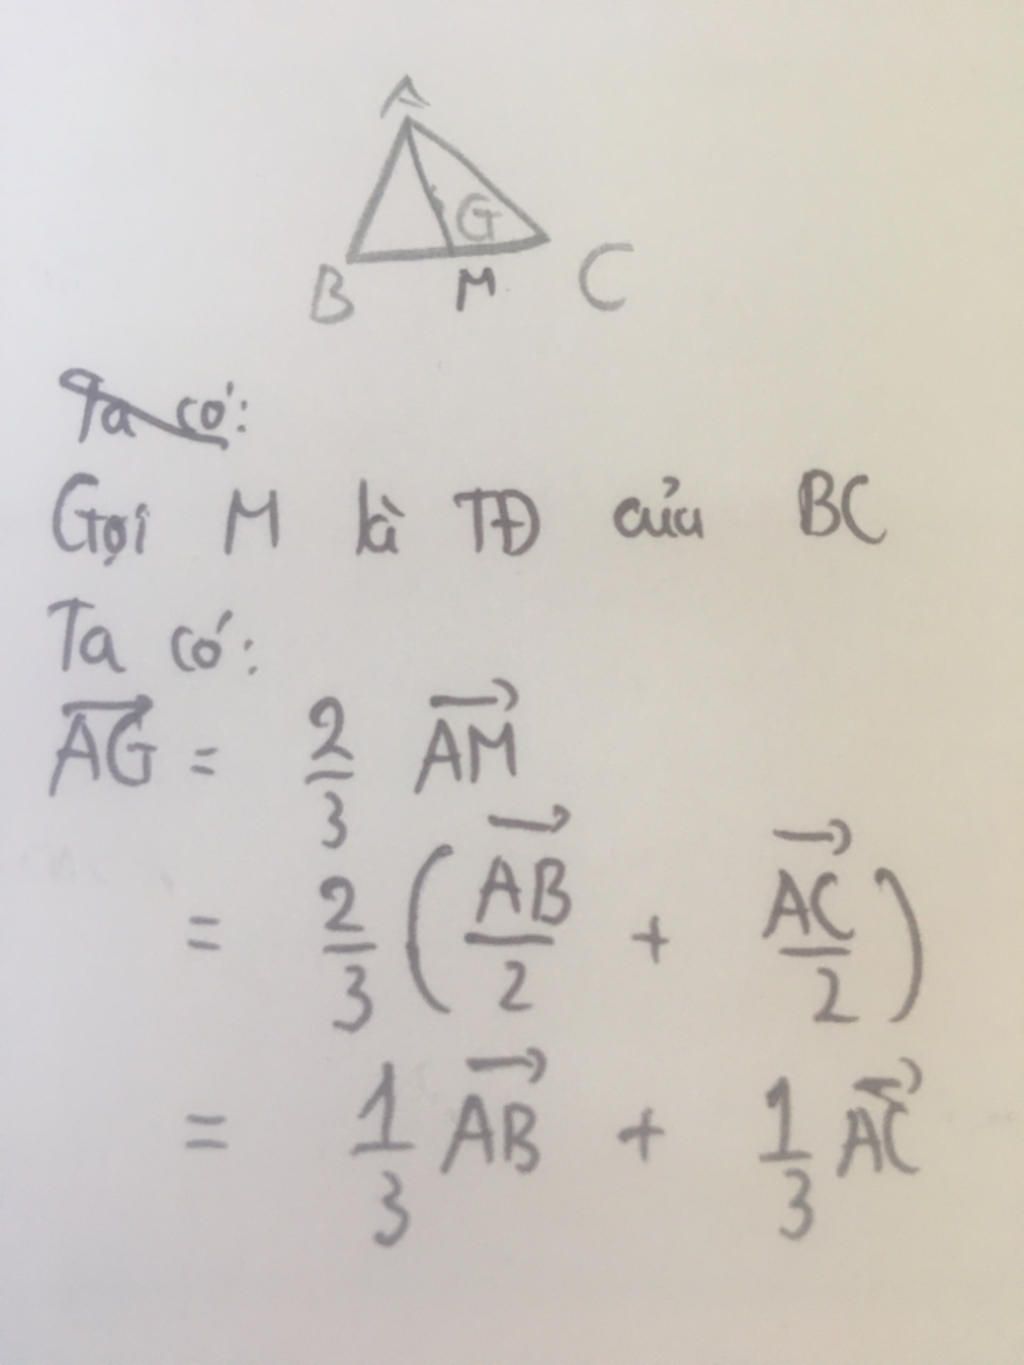 A
G
B M C
Ta có:
Gọi M là TĐ của BC
Ta có:
$\overrightarrow{AG} = \frac{2}{3} \overrightarrow{AM}$
$= \frac{2}{3} \left( \frac{\overrightarrow{AB}}{2} + \frac{\overrightarrow{AC}}{2} \right)$
$= \frac{1}{3} \overrightarrow{AB} + \frac{1}{3} \overrightarrow{AC}$